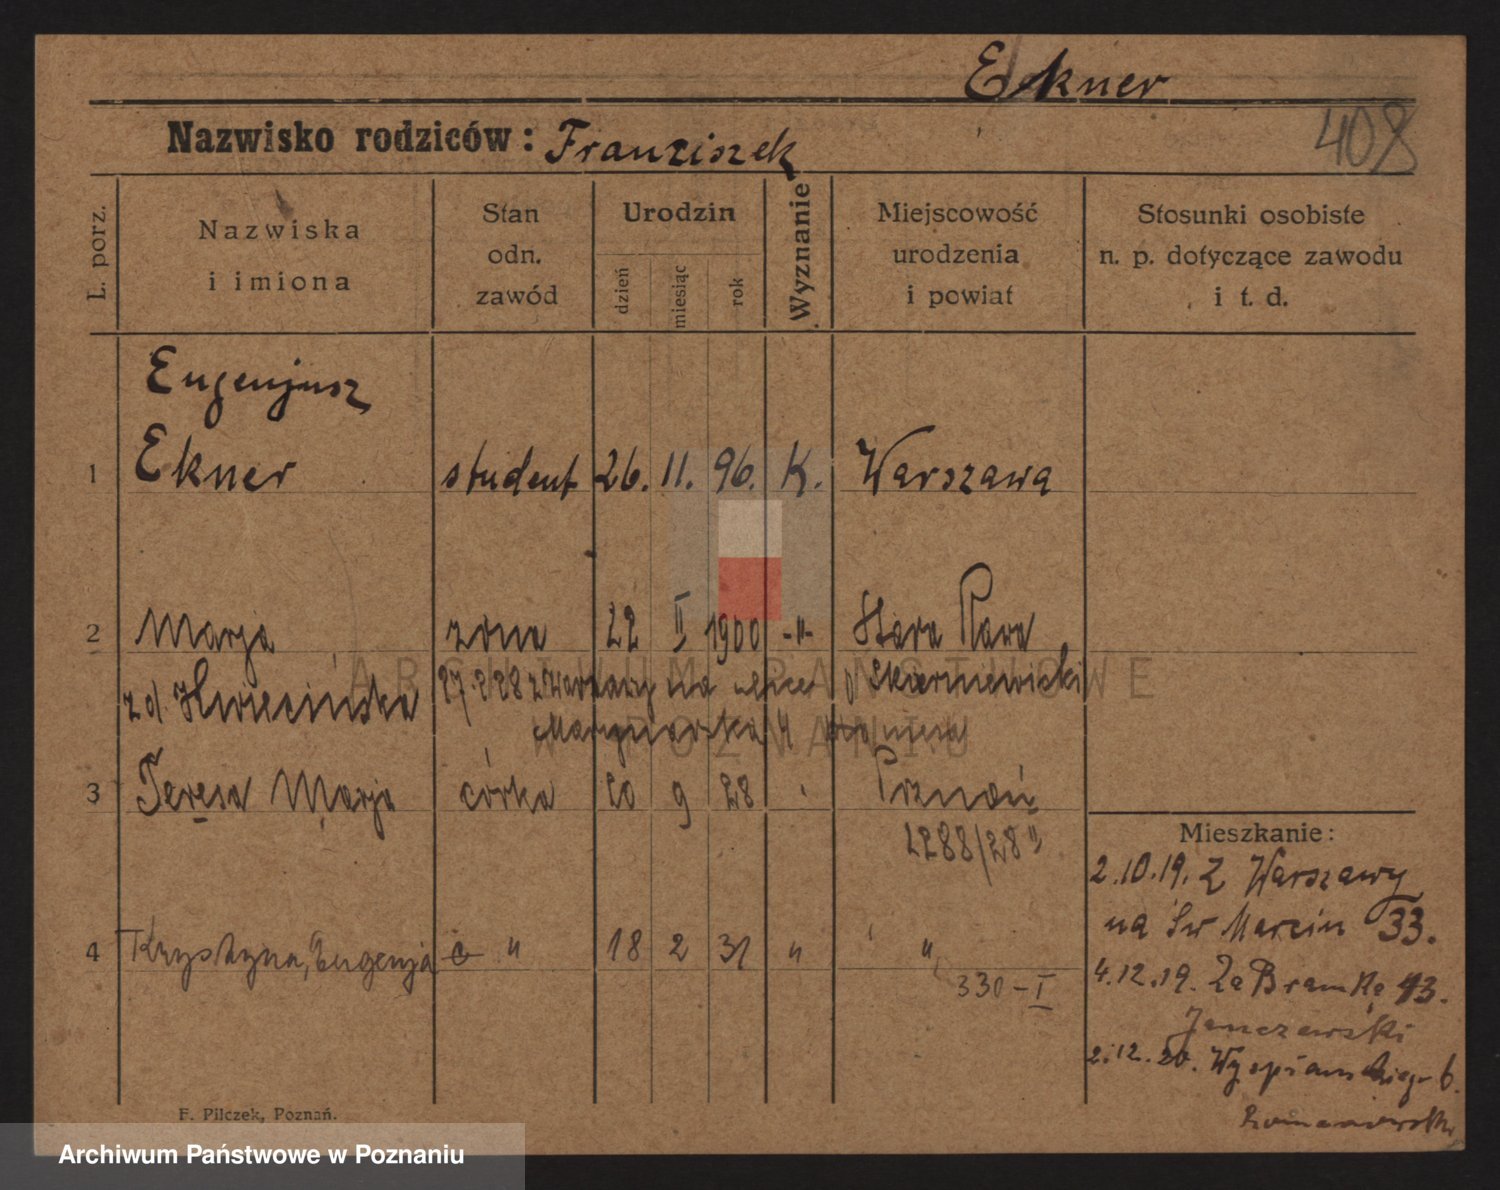 Ekner
Nazwisko rodziców: Franziszek
408
L. porz.
Nazwiska
i imiona
Stan
odn.
zawód
Urodzin
dzień
miesiąc
rok
Wyznanie
Miejscowość
urodzenia
i powiat
Stosunki osobiste
n. p. dotyczące zawodu
i t. d.
Eugenjusz
1 Ekner student 26. 11. 96. K. Warszawa
2 Marja żona 22 II 1900 -"- Stara Rawa
z d. 27.2.28 z Warszawy na ulice Skierniewicki
3 Teresa Marja córka 20 9 28 Poznań
2288/28"
4 Krystyna, Eugenja c " 18 2 31 " "
330-I
Mieszkanie:
2.10.19. Z Warszawy
na Św Marcin 33.
4.12.19. Za Bramką 13.
Janczewski
2.12.20. Wyspiańskiego 6.
F. Pilczek, Poznań.
ARCHIWUM PAŃSTWOWE
W POZNANIU
Archiwum Państwowe w Poznaniu